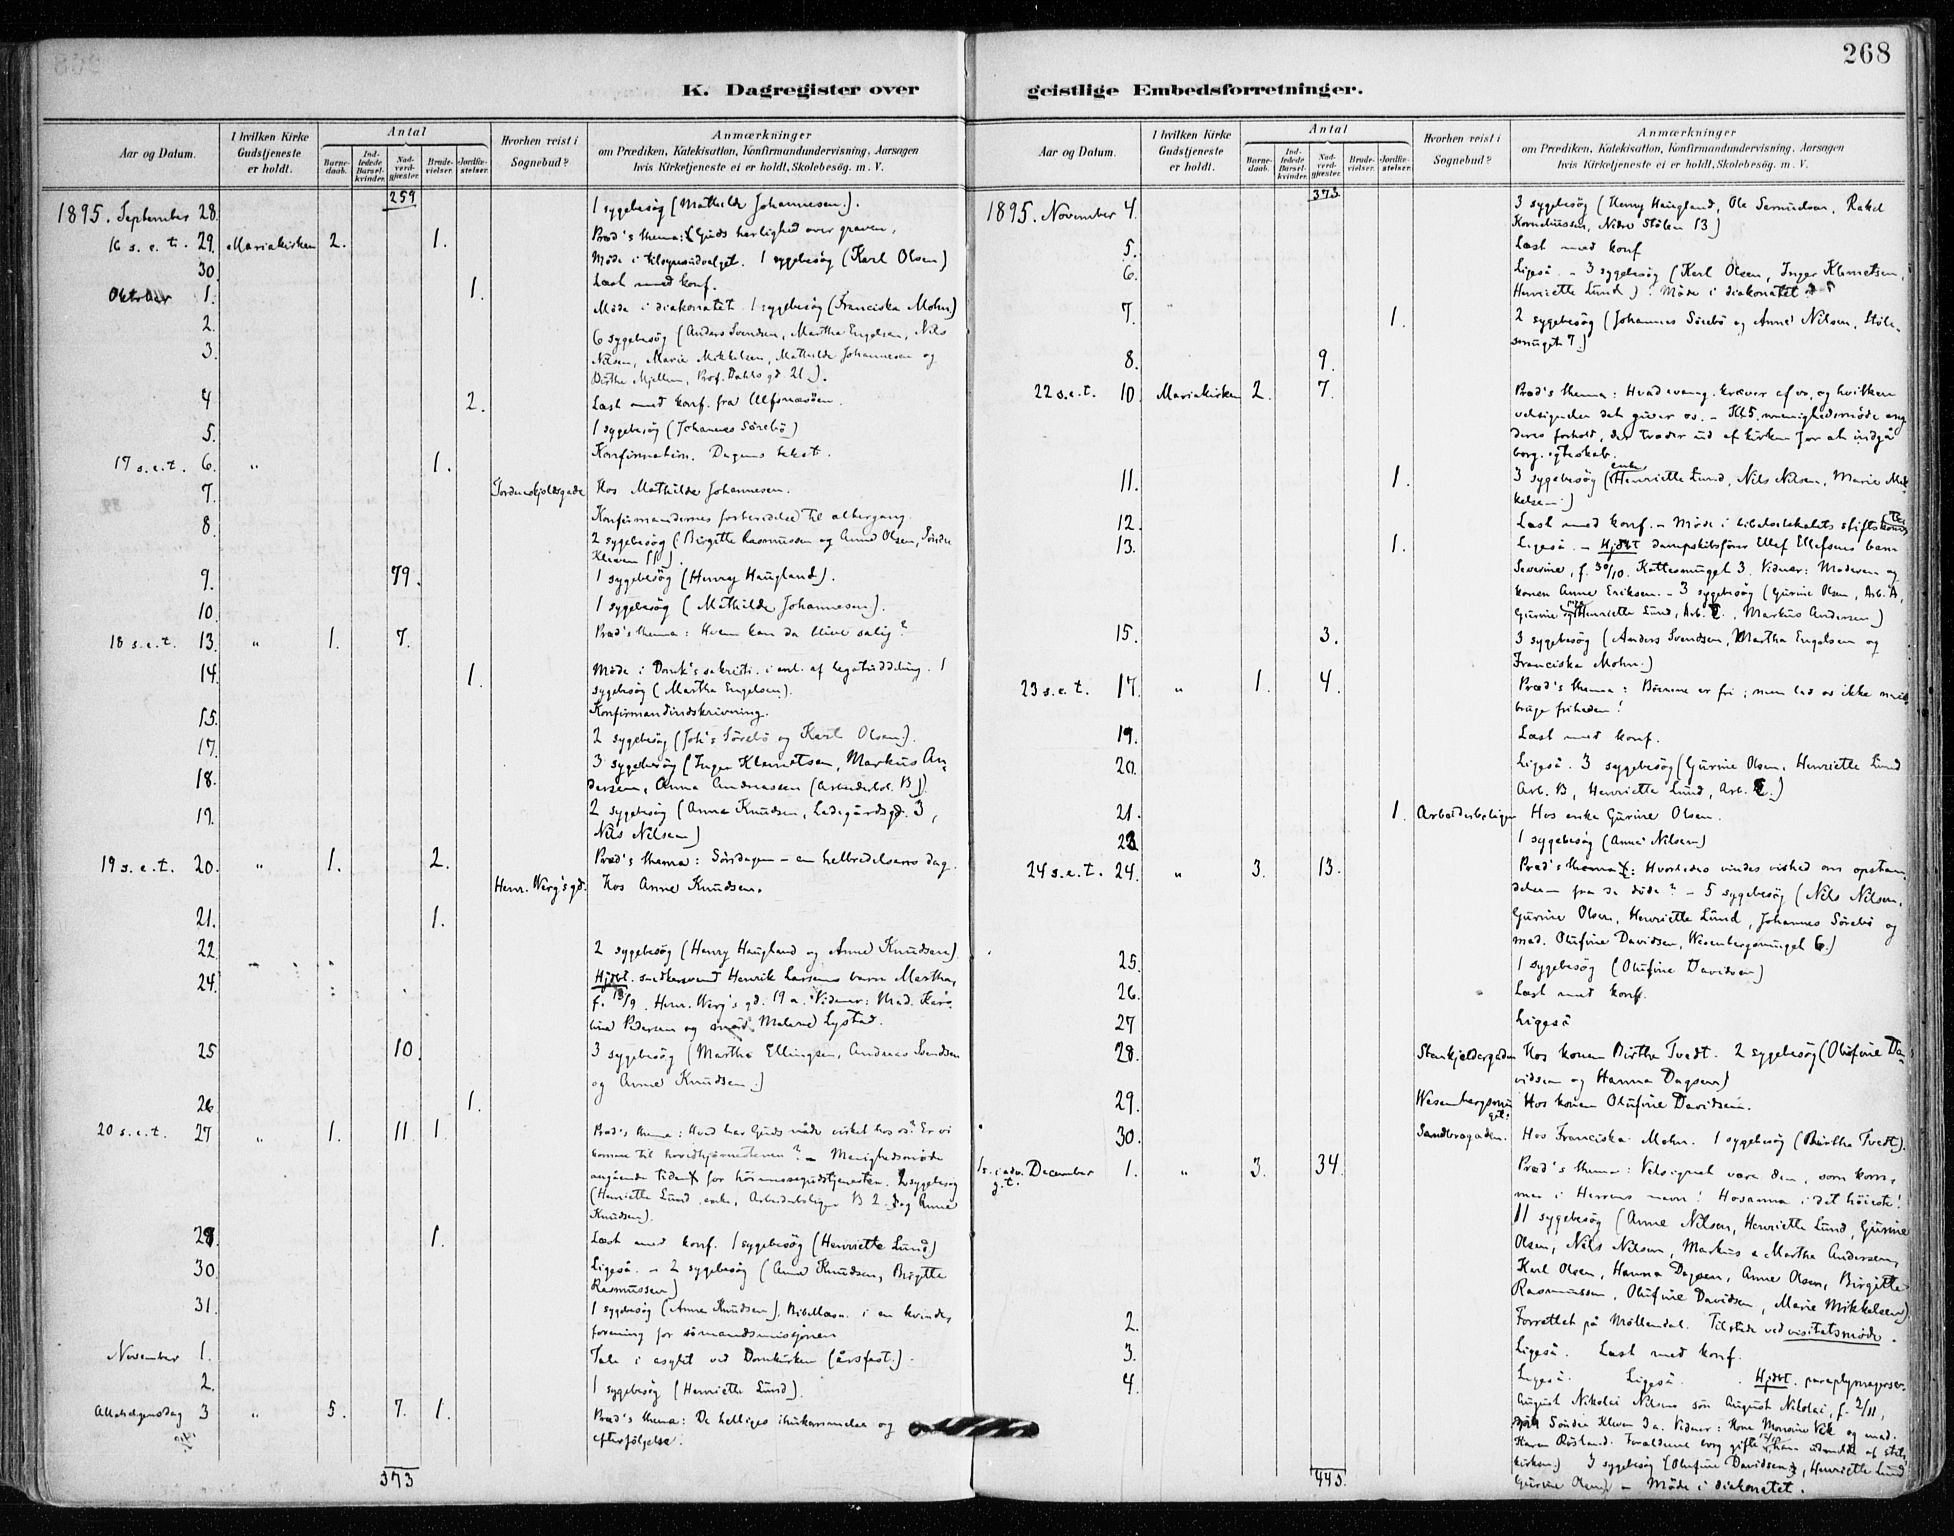 268
K. Dagregister over geistlige Embedsforretninger.
Aar og Datum. I hvilken Kirke Gudstjeneste er holdt. Antal Barne-daab. Ind-ledede Barsel-kvinder. Nad-verd-gjæster. Brude-vielser. Jordfæ-stelser. Hvorhen reist i Sognebud? Anmærkninger om Prædiken, Katekisation, Konfirmandundervisning, Aarsagen hvis Kirketjeneste ei er holdt, Skolebesøg. m. V.
259
1895. September 28. 1 sygebesög (Mathilde Johannesen).
16 s. e. t. 29. Mariakirken 2. 1. Præd's thema: Guds herlighed over graven.
30. Møde i tilsynsudvalget. 1 sygebesög (Karl Olsen)
Oktober 1. 1. Læst med konf.
2. Møde i diakonatet. 1 sygebesög (Franciska Mohn)
3. 6 sygebesög (Anders Svendsen, Martha Engelsen, Nils
Nilsen, Marie Mikkelsen, Mathilde Johannesen og
Birthe Mjellem, Prof. Dahls gd. 21.).
4 2. Læst med konf. fra Ulfsnæsöen.
5. 1 sygebesög (Johannes Sörebö)
17 s. e. t. 6. " 1. Konfirmation. Dagens tekst.
7. Tordenskjoldsgade Hos Mathilde Johannesen.
8. Konfirmandernes forberedelse til altergang.
2 sygebesög (Birgitte Rasmussen og Anne Olsen, Söndre
Kleven 11.)
9. 79. 1 sygebesög (Henry Haugland).
10. 1 sygebesög (Mathilde Johannesen).
18 s. e. t. 13. " 1. 7. Præd's thema: Hvem kan da blive salig?
14. 1. Møde i Domk's sakristi i anl. af legatuddeling. 1
sygebesög (Martha Engelsen).
15. Konfirmandindskrivning.
17. 2 sygebesög (Joh's Sörebö og Karl Olsen).
18. 3 sygebesög (Inger Klemetsen, Markus An-
dersen, Anna Andreassen (Arbeiderbol. B)).
19. 2 sygebesög (Anne Knudsen, Ladegårdsgd. 3,
Nils Nilsen)
19 s. e. t. 20. " 1. 2. Præd's thema: Söndagen – en helbredelsens dag.
Henr. Werg's gd. Hos Anne Knudsen.
21. 1.
22. 2 sygebesög (Henry Haugland og Anne Knudsen)
24. Hjdbt. snedkersvend Henrik Larsens barn Martha,
f. 13/9. Henr. Werg's gd. 19 a. Vidner: Mad.
Pedersen og mad. Malene Lystad.
25 10. 3 sygebesög (Martha Ellingsen, Andreas Svendsen
og Anne Knudsen.)
26 1.
20 s. e. t. 27 " 1. 11 1. Præd's thema: Hvad har Guds nåde virket hos os? Er vi
komne til hovedhjørnestenen? – Menighedsmøde
angående tiden for höimessegudstjenesten. 2 sygebesög
(Henriette Lund, enke, Arbeiderboliger B 2. og Anne
Knudsen).
29. 1. Læst med konf. 1 sygebesög (Henriette Lund)
30 Ligeså. – 2 sygebesög (Anne Knudsen, Birgitte
Rasmussen)
31. 1 sygebesög (Anne Knudsen). Bibellæsn. i en kvinde-
forening for sömandsmissionen
November 1. Tale i asylet ved Domkirken (årsfest.).
2. 1 sygebesög (Henriette Lund).
Allehelgensdag 3 " 5. 7. 1. Præd's thema: De helliges ihukommelse og
efterfölgelse.
373
Aar og Datum. I hvilken Kirke Gudstjeneste er holdt. Antal Barne-daab. Ind-ledede Barsel-kvinder. Nad-verd-gjæster. Brude-vielser. Jordfæ-stelser. Hvorhen reist i Sognebud? Anmærkninger om Prædiken, Katekisation, Konfirmandundervisning, Aarsagen hvis Kirketjeneste ei er holdt, Skolebesøg. m. V.
373
1895. November 4. 3 sygebesög (Henry Haugland, Ole Samuelsen, Rakel
Korneliussen, Nedre Stölen 13)
5. Læst med konf
6. Ligeså – 3 sygebesög (Karl Olsen, Inger Klemetsen,
Henriette Lund). Møde i diakonatet
7. 1. 2 sygebesög (Johannes Sörebö og Anne Nilsen, Stöle-
smuget 7.)
8. 9.
22 s. e. t. 10 Mariakirken 2. 7. Præd's thema: Hvad evang. kræver af os, og hvilken
velsignelse det giver os. – Kl 5 menighedsmøde ang
deres forhold, der træder ud af kirken for at indgå
borg. egteskab.
11. 1. 3 sygebesög (enke Henriette Lund, Nils Nilsen, Marie Mik-
kelsen.)
12. Læst med konf. – Møde i bibelselskabets
13. 1. Ligeså – Hjdbt dampskibsförer Ellef Ellefsens barn
Severine, f. 30/10. Kattesmuget 3. Vidner: Moderen og
konen Anne Eriksen. – 3 sygebesög (Gurine Olsen, Arb. A,
Henriette Lund, Arb. , Markus Andersen)
15. 3. 3 sygebesög (Anders Svendsen, Martha Engelsen og
Franciska Mohn.)
23 s. e. t. 17. " 1. 4. Præd's thema: Börnene er fri; men lad os ikke mis-
bruge friheden!
19. Læst med konf.
20. Ligeså. 3 sygebesög (Gurine Olsen, Henriette Lund
Arb. B, Henriette Lund, Arb. )
21. 1. Arbeiderboliger Hos enke Gurine Olsen.
23 1 sygebesög (Anne Nilsen)
24 s. e. t. 24. " 3. 13. Præd's thema: Hvorledes vindes vished om opstan-
delsen fra de döde? – 5 sygebesög (Nils Nilsen,
Gurine Olsen, Henriette Lund, Johannes Sörebö og
mad. Olufine Davidsen, Wesenbergsmuget 6.)
25. 1 sygebesög (Olufine Davidsen)
26. Læst med konf.
27 Ligeså
28. Stenkjeldergaden Hos konen Birthe Tvedt. 2 sygebesög (Olufine Da-
vidsen og Hanna Dagsen)
29. Wesenbergsmu-get. Hos konen Olufine Davidsen.
30. Sandbrogaden. Hos Franciska Mohn. 1 sygebesög (Birthe Tvedt).
1 s. i adv. December 1. " 3. 34. Præd's thema: Velsignet være den, som kom-
mer i Herrens navn! Hosanna i det höieste!
11 sygebesög (Anne Nilsen, Henriette Lund, Gurine
Olsen, Nils Nilsen, Markus & Martha Andersen,
Karl Olsen, Hanna Dagsen, Anne Olsen, Birgitte
Rasmussen, Olufine Davidsen, Marie Mikkelsen)
2. Forrettet på Møllendal. Tilstede ved visitatsmøde.
3. Ligeså. Læst med konf.
4. Ligeså. Ligeså. Hjdbt. paraplymager
August Nikolai Nilsens sön August Nikolai, f. 2/11,
Söndre Kleven 3a. Vidner: Kone Monsine Vik og mad.
Karen Røsland. Forældrene borg. gifte, udmeldte af stats-
kirken.) 3 sygebesög (Olufine Davidsen, Henriette Lund
Gurine Olsen) – Møde i diakonatet.
443.